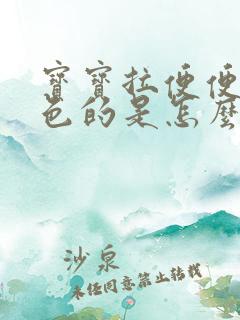 寶寶拉便便
色的是怎麼
沙泉
未经同意禁止转载